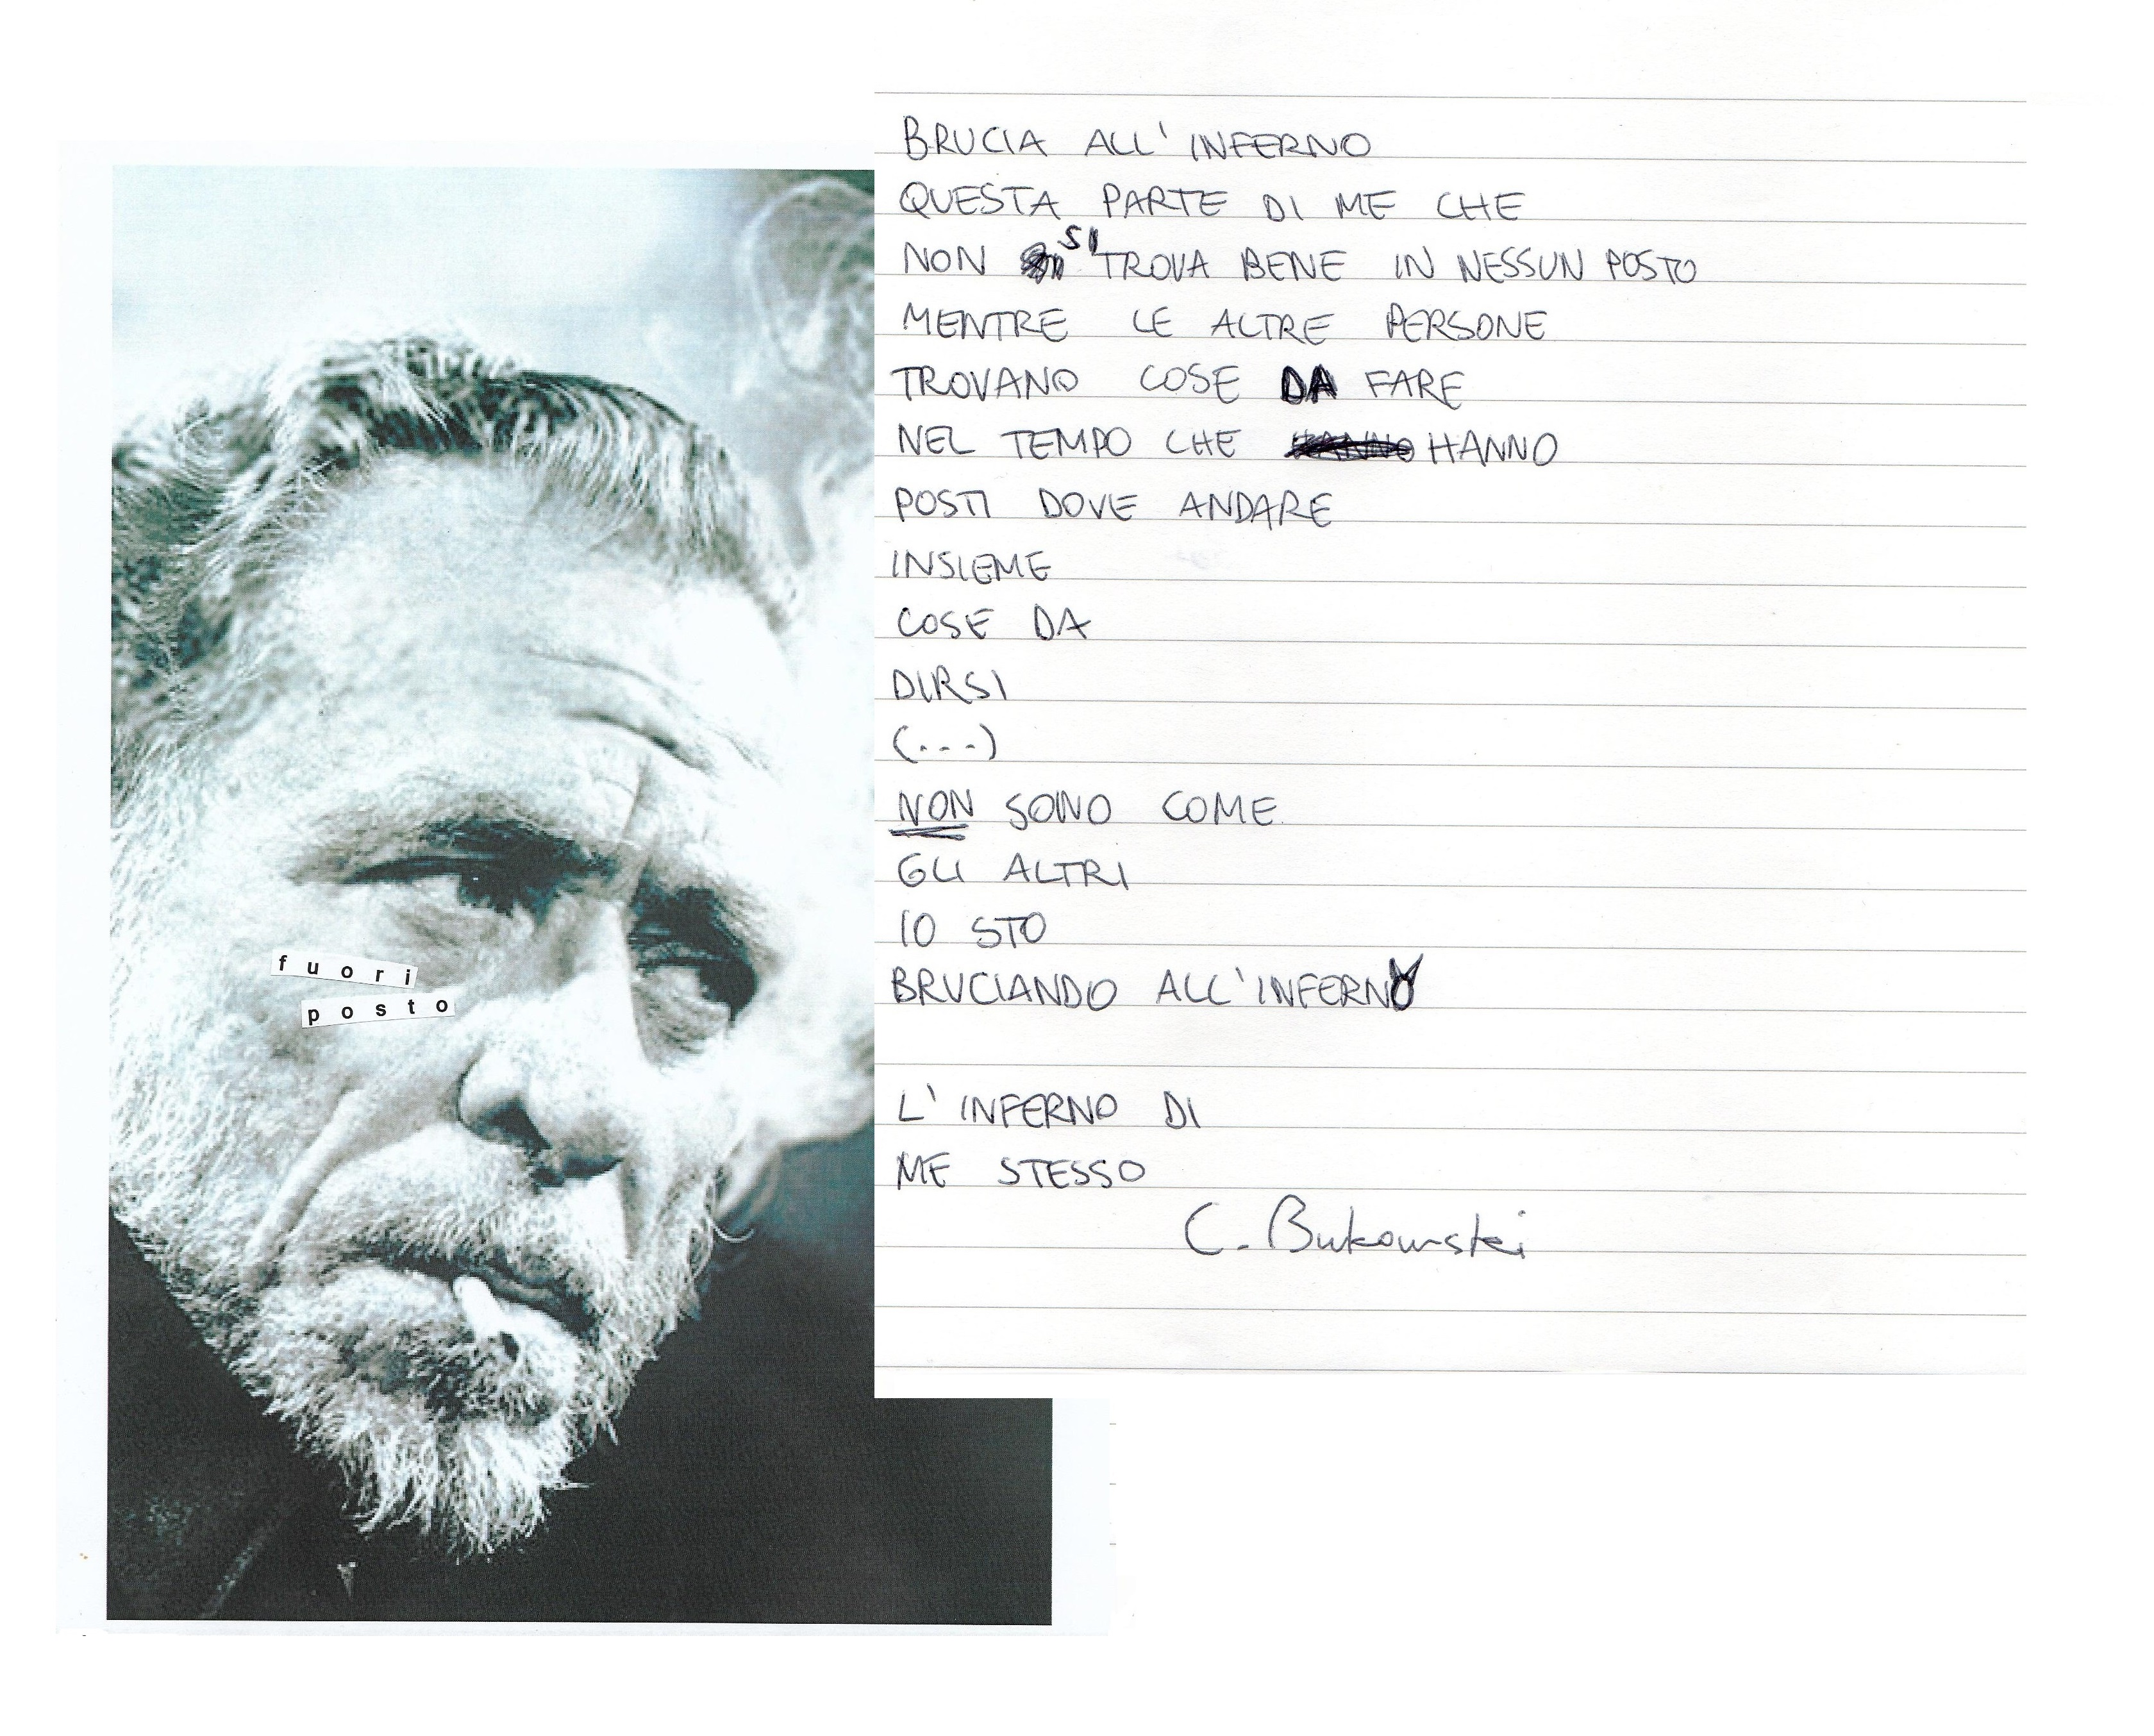 fuori
posto
BRUCIA ALL' INFERNO
QUESTA PARTE DI ME CHE
NON SI TROVA BENE IN NESSUN POSTO
MENTRE LE ALTRE PERSONE
TROVANO COSE DA FARE
NEL TEMPO CHE HANNO HANNO
POSTI DOVE ANDARE
INSIEME
COSE DA
DIRSI
(...)
NON SONO COME
GLI ALTRI
IO STO
BRUCIANDO ALL'INFERNO
L' INFERNO DI
ME STESSO
C. Bukowski